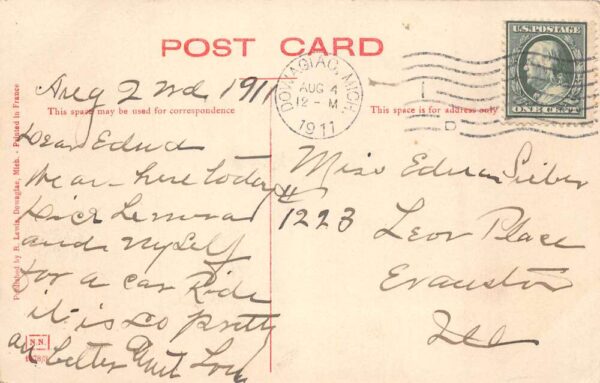 POST CARD
DOWAGIAC, MICH.
AUG 4
12 - M
1911
U.S. POSTAGE
ONE CENT
Aug 2nd 1911
This space may be used for correspondence
This space is for address only
Dear Edna
We are here today
and myself
for a car Ride
it is so pretty
all better Aunt Lou
Miss Edna Sieber
1223
Leon Place
Evanston
Ill
Published by B. Lewis, Dowagiac, Mich. - Printed in France
N.N.